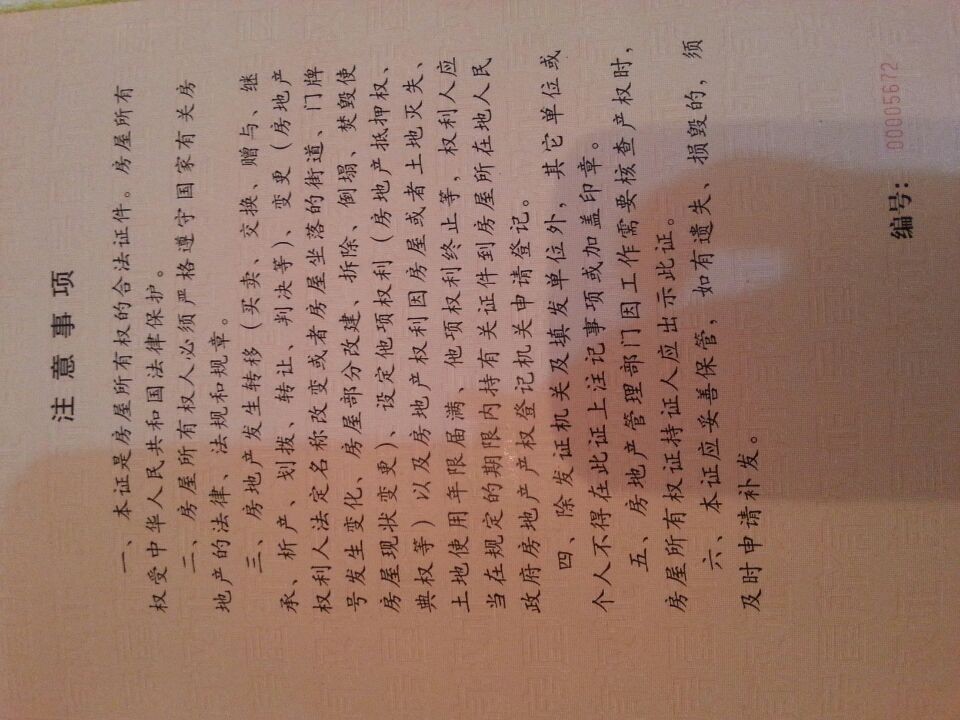 注意事项
一、本证是房屋所有权的合法证件。房屋所有
权受中华人民共和国法律保护。
二、房屋所有权人必须严格遵守国家有关房
地产的法律、法规和规章。
三、房地产发生转移（买卖、交换、赠与、继
承、析产、划拨、转让、判决等）、变更（房地产
权利人法定名称改变或者房屋坐落的街道、门牌
号发生变化、房屋部分改建、拆除、倒塌、焚毁使
房屋现状变更）、设定他项权利（房地产抵押权、
典权等）以及房地产权利因房屋或者土地灭失、
土地使用年限届满、他项权利终止等，权利人应
当在规定的期限内持有关证件到房屋所在地人民
政府房地产产权登记机关申请登记。
四、除发证机关及填发单位外，其它单位或
个人不得在此证上注记事项或加盖印章。
五、房地产管理部门因工作需要核查产权时，
房屋所有权证持证人应出示此证。
六、本证应妥善保管，如有遗失、损毁的，须
及时申请补发。
编号：00005672